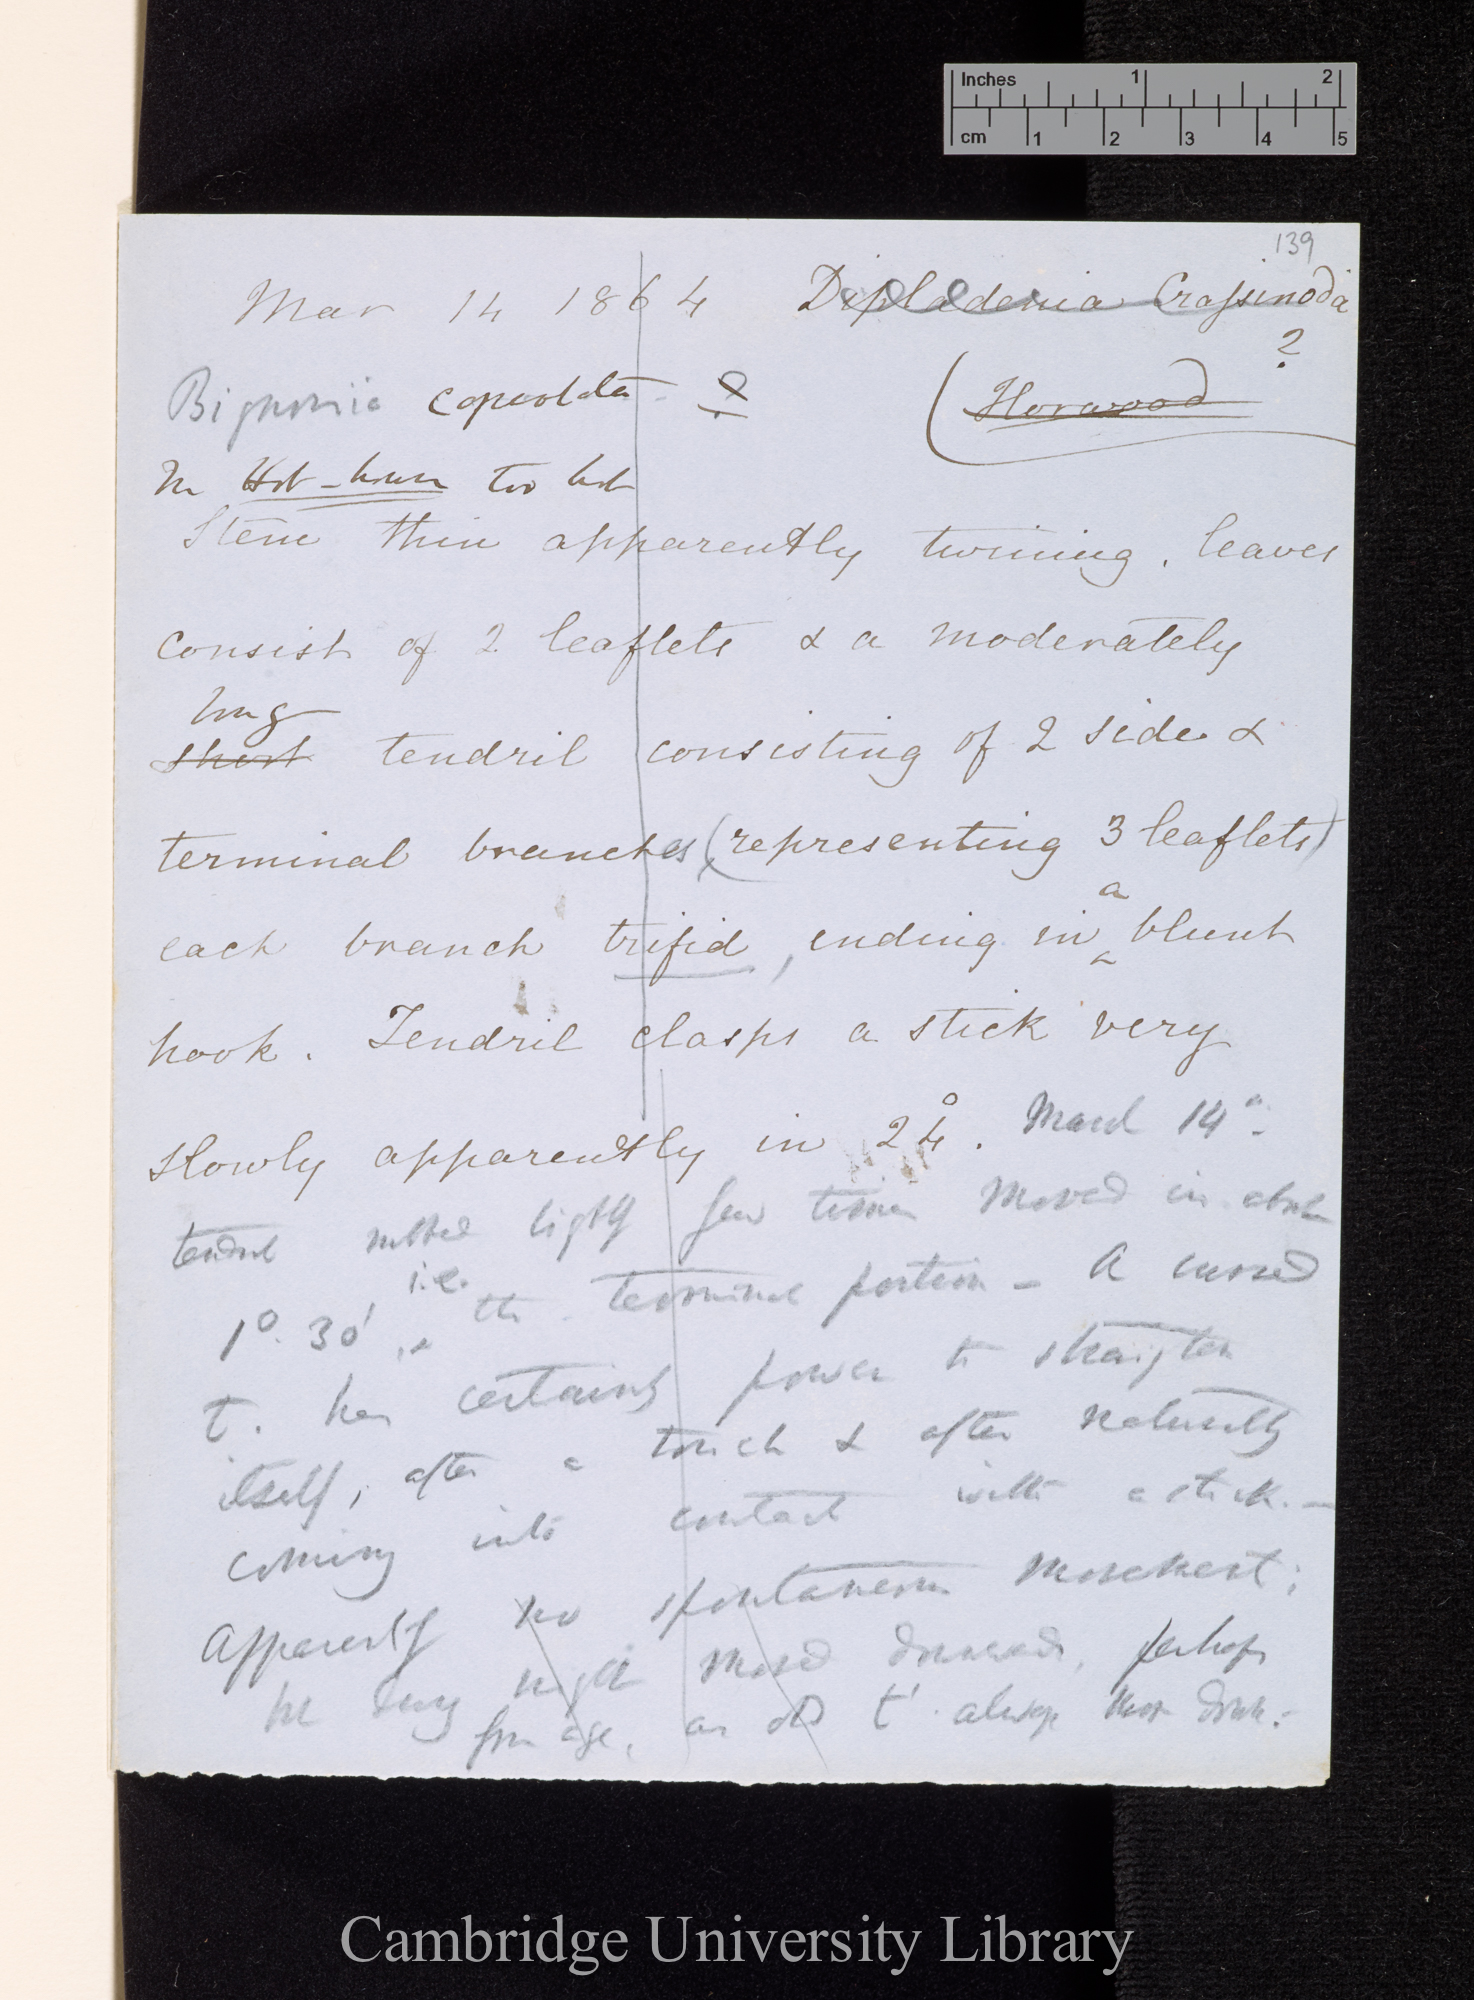 Inches 1 2
cm 1 2 3 4 5
139
Mar 14 1864 Dipladenia Crassinoda
?
Bignonia capreolata ?
(Horwood
In Hot-house too hot
Stem thin apparently twining. leaves
consist of 2 leaflets & a moderately
long
short tendril consisting of 2 side &
terminal branches (representing 3 leaflets)
a
each branch trifid, ending in blunt
hook. Tendril clasps a stick very
slowly apparently in 24°. March 14th
tendril rubbed lightly few times moved in about
1°. 30', i.e. the terminal portion — A curved
t. has certainly power to straighten
itself, after a touch & after naturally
coming into contact with a stick. —
Apparently no spontaneous movement;
in long night moved downwards, perhaps
from age, as old t. always hang down.